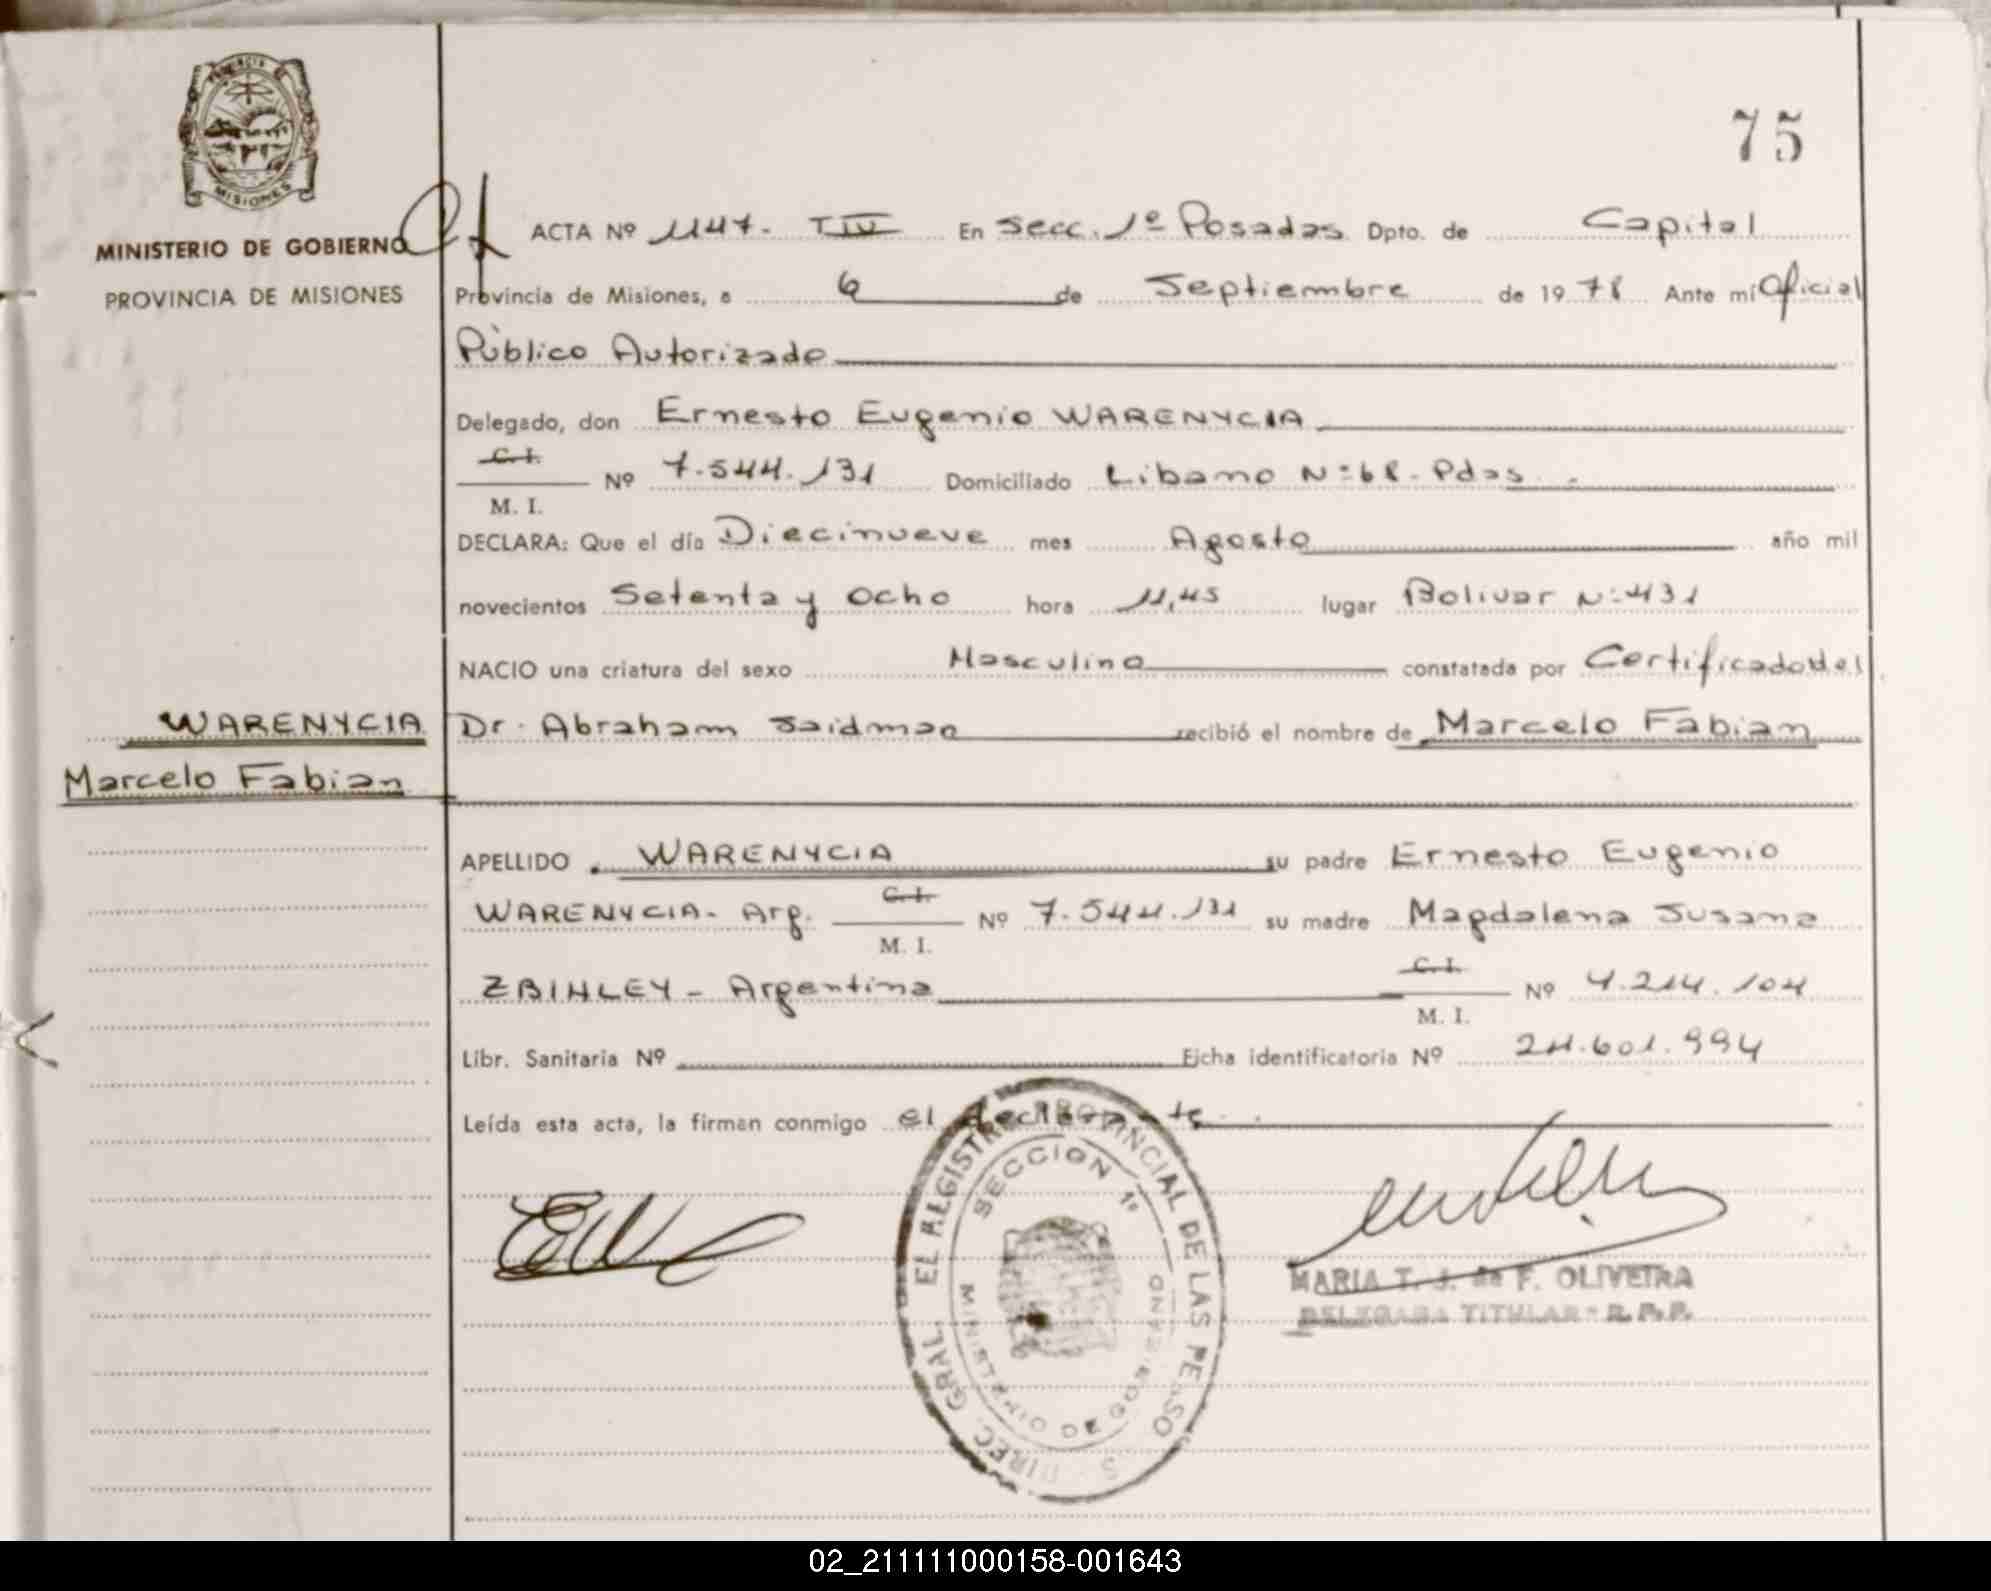 75
PROVINCIA DE
MISIONES
MINISTERIO DE GOBIERNO
PROVINCIA DE MISIONES
ACTA Nº 1147. T IV En Secc. 1º Posadas Dpto. de Capital
Provincia de Misiones, a 6 de Septiembre de 1978 Ante mí Oficial
Público Autorizado
Delegado, don Ernesto Eugenio WARENYCIA
C. I.
Nº 7.544.131 Domiciliado Libano Nº 68 - Pdas.
M. I.
DECLARA: Que el día Diecinueve mes Agosto año mil
novecientos Setenta y Ocho hora 11,45 lugar Bolivar Nº 431
NACIO una criatura del sexo Masculino constatada por Certificado del
WARENYCIA
Marcelo Fabian
Dr. Abraham Saidman recibió el nombre de Marcelo Fabian
APELLIDO WARENYCIA su padre Ernesto Eugenio
C. I.
WARENYCIA - Arg. Nº 7.544.131 su madre Magdalena Susana
M. I.
C. I.
ZBINLEY - Argentina Nº 4.214.104
M. I.
Libr. Sanitaria Nº Ficha identificatoria Nº 24.601.994
Leída esta acta, la firman conmigo el declarante.
DIREC. GRAL. EL REGISTRO PROVINCIAL DE LAS PERSONAS
SECCION 1º
MINISTERIO DE GOBIERNO
MARIA T. J. de F. OLIVEIRA
DELEGADA TITULAR - R. P. P.
02_211111000158-001643